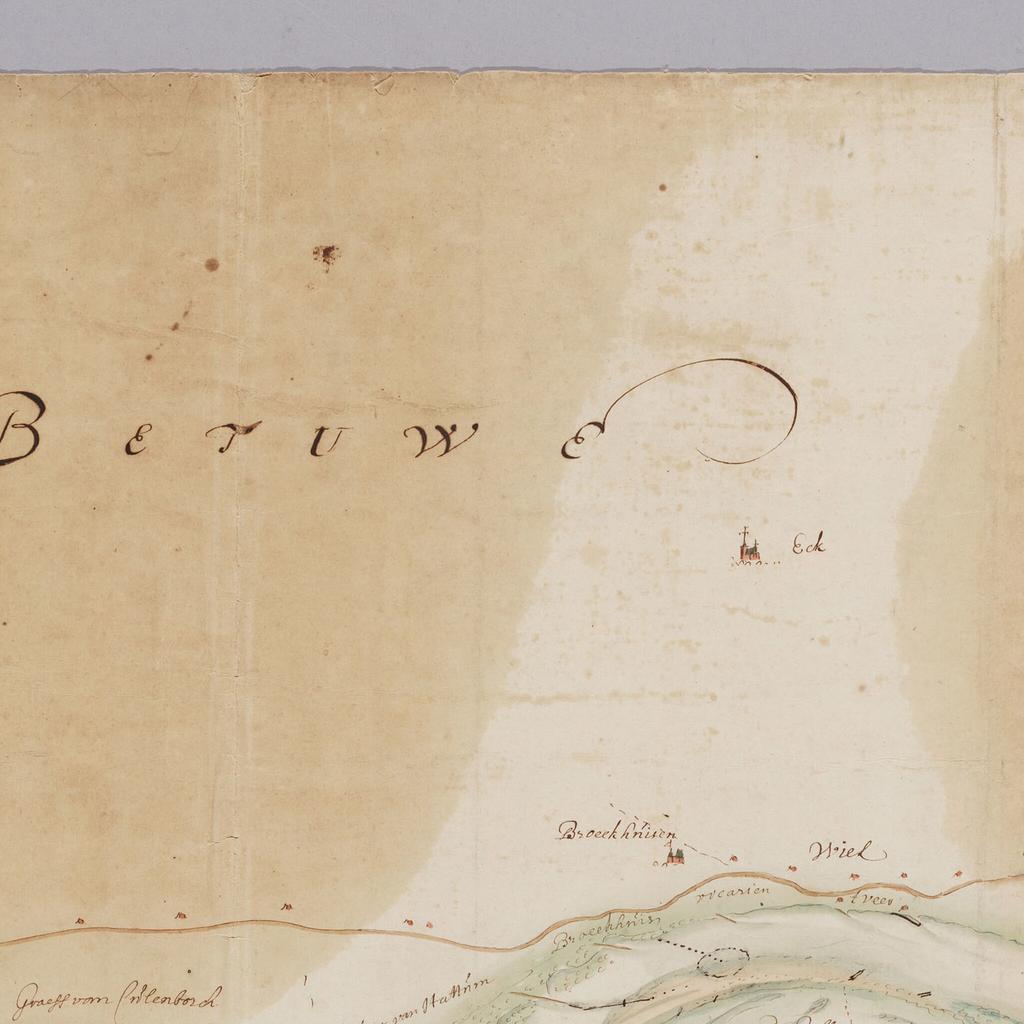 BETUWE
Eck
Broeckhuisen
Wiel
vicarien
t'veer
Broeckhuis
Graeff vom Culenborch
van Hattum